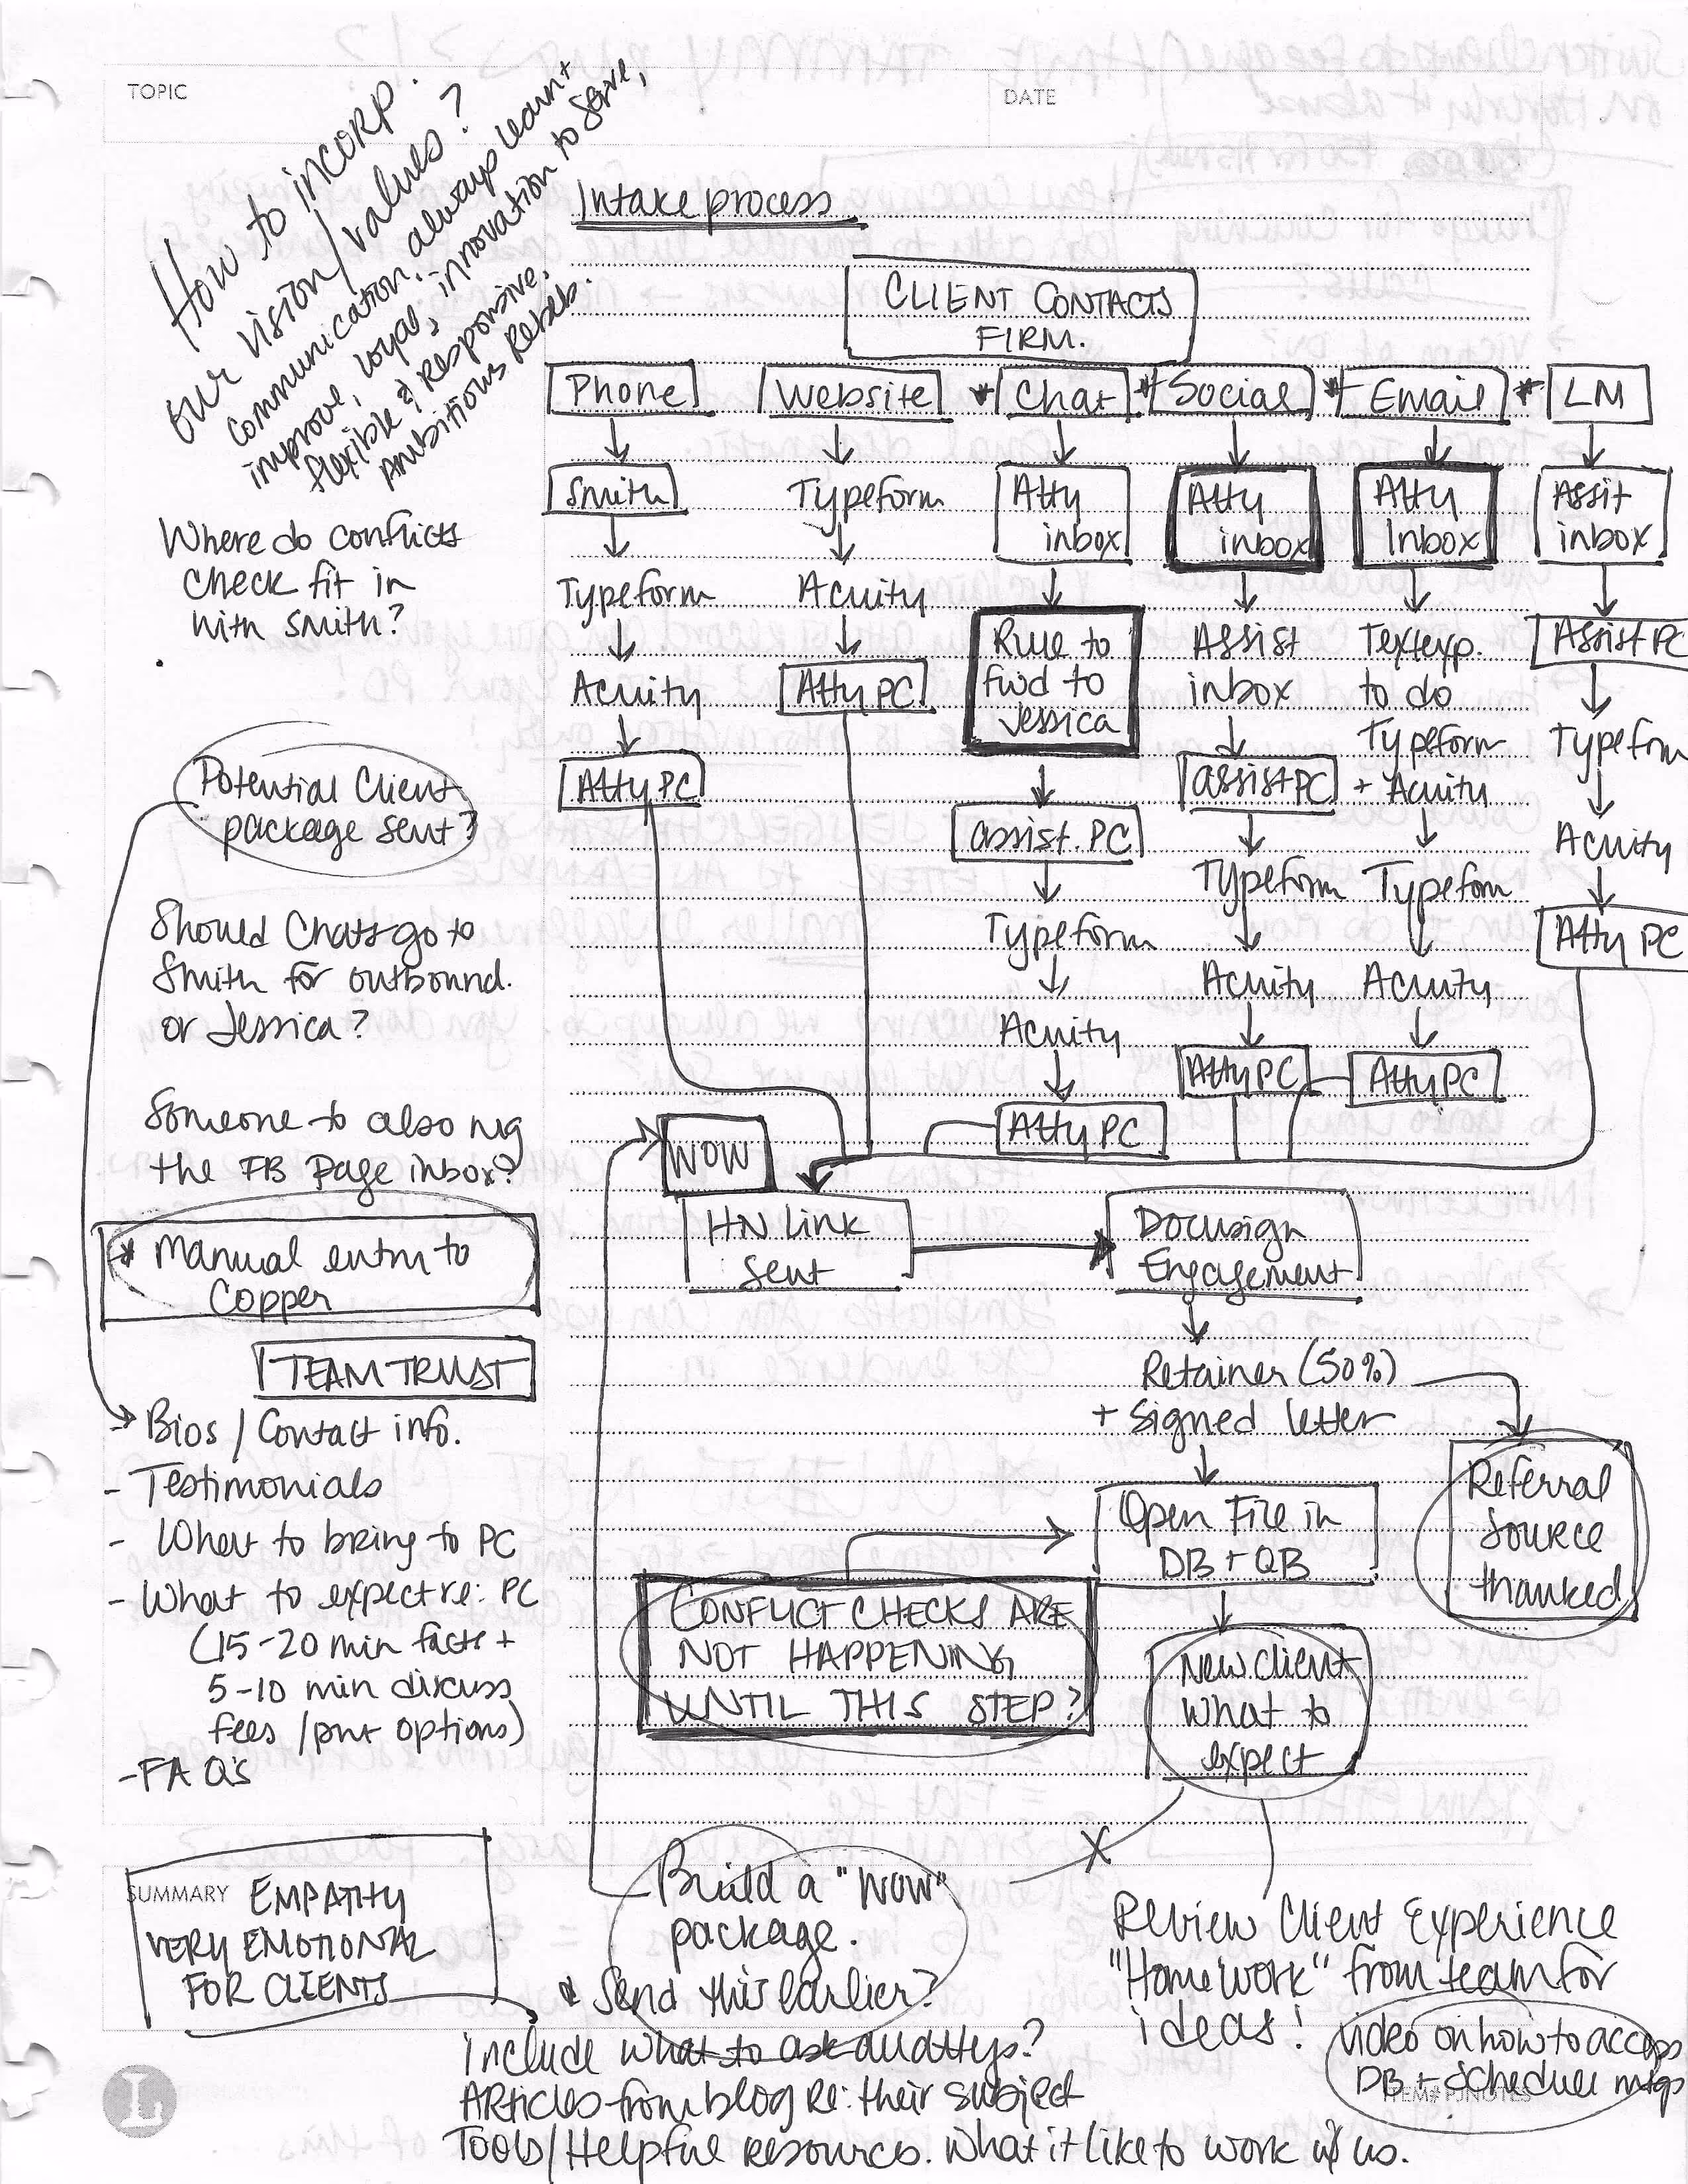 TOPIC
DATE
How to incorp.
our vision/values?
Communication, always learn +
improve, loyal, innovation to serve,
flexible & responsive,
Ambitious Rebels.
Intake process
CLIENT CONTACTS
FIRM.
Phone
Website
* Chat
* Social
* Email
* LM
Smith
Typeform
Acuity
Atty PC
Typeform
Acuity
Atty PC
Atty
inbox
Rule to
fwd to
Jessica
assist. PC
Typeform
Acuity
Atty PC
Atty
inbox
Assist
inbox
assist PC
Typeform
Acuity
Atty PC
Atty
Inbox
Textexp.
to do
Typeform
+ Acuity
Typefom
Acuity
Atty PC
Assit
inbox
Assist PC
Typefrm
Acuity
Atty PC
Where do conflicts
check fit in
with Smith?
Potential Client
package sent?
Should Chats go to
Smith for outbound.
or Jessica?
Someone to also mg
the FB Page inbox?
* Manual entry to
Copper
TEAM TRUST
Bios / Contact info.
- Testimonials
- What to bring to PC
- What to expect re: PC
(15-20 min facts +
5-10 min discuss
fees / pmt options)
- FAQs
WOW
HN Link
Sent
Docusign
Engagement
Retainer (50%)
+ signed letter
Open File in
DB + QB
Referral
Source
thanked
CONFLICT CHECKS ARE
NOT HAPPENING
UNTIL THIS STEP?
New Client
What to
expect
SUMMARY
EMPATHY
VERY EMOTIONAL
FOR CLIENTS
Build a "WOW"
package.
Send this earlier?
include what to ask all attys?
Articles from blog re: their subject
Tools/Helpful resources. What it like to work w/ us.
Review Client Experience
"Homework" from team for
ideas!
Video on how to access
DB + Schedule mtgs
ITEM# PJNOTES
L